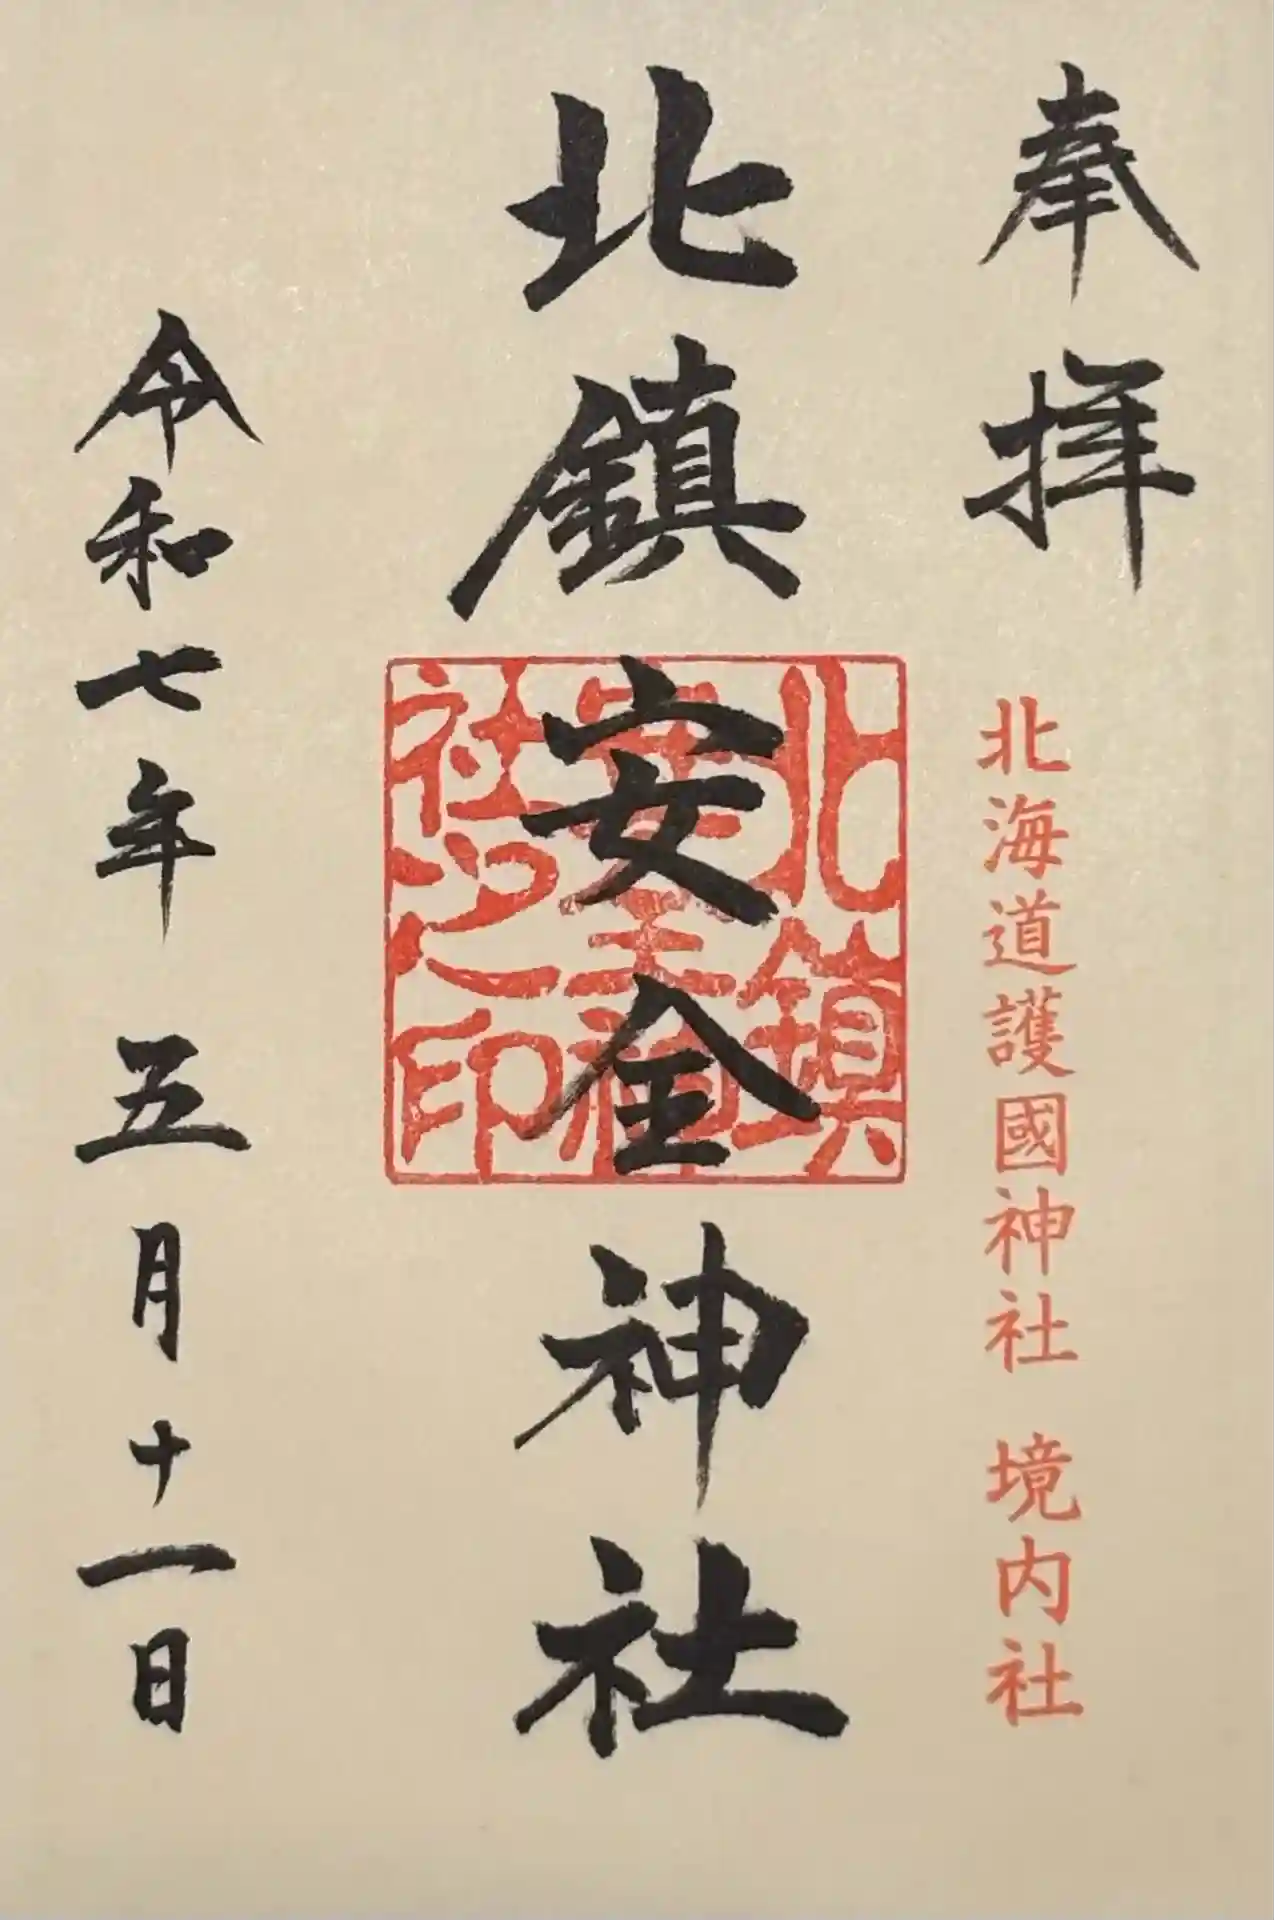 奉拝
北海道護國神社 境内社
北鎮安全神社
北鎮安全神社之印
令和七年五月十一日